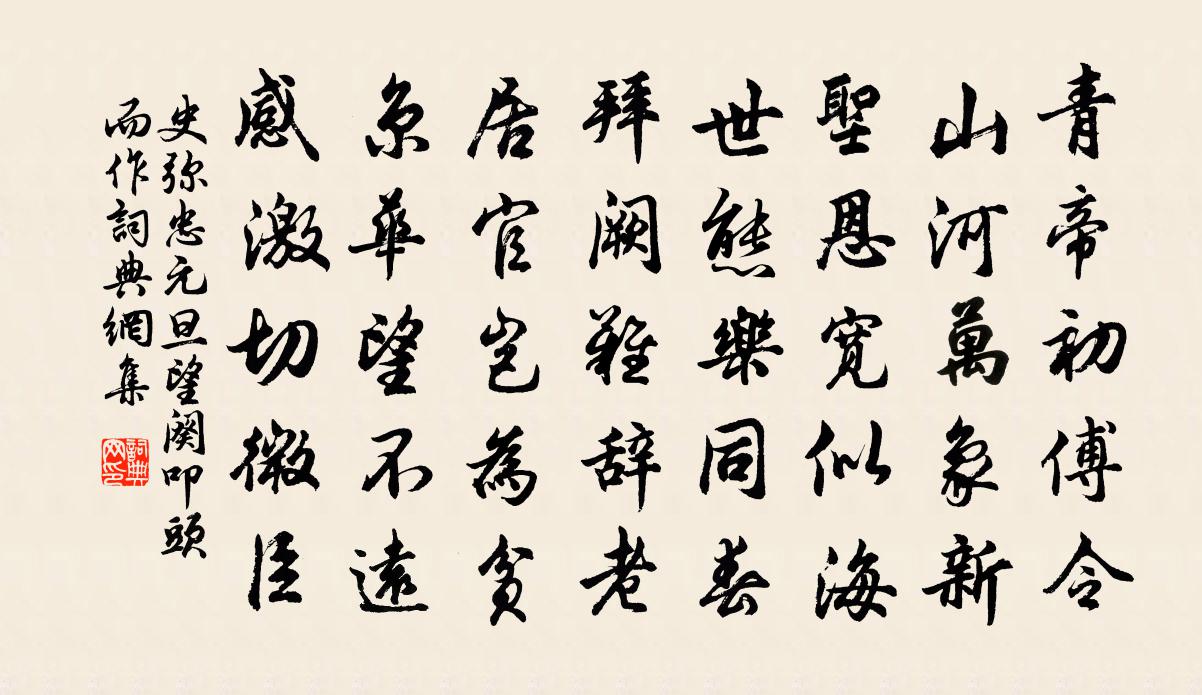 青帝初傅令
山河萬象新
聖恩寬似海
世態樂同春
拜闕難辭老
居官豈為貧
京華望不遠
感激切微臣
史弥忠元旦望闕叩頭
而作詞典網集
詞典网印